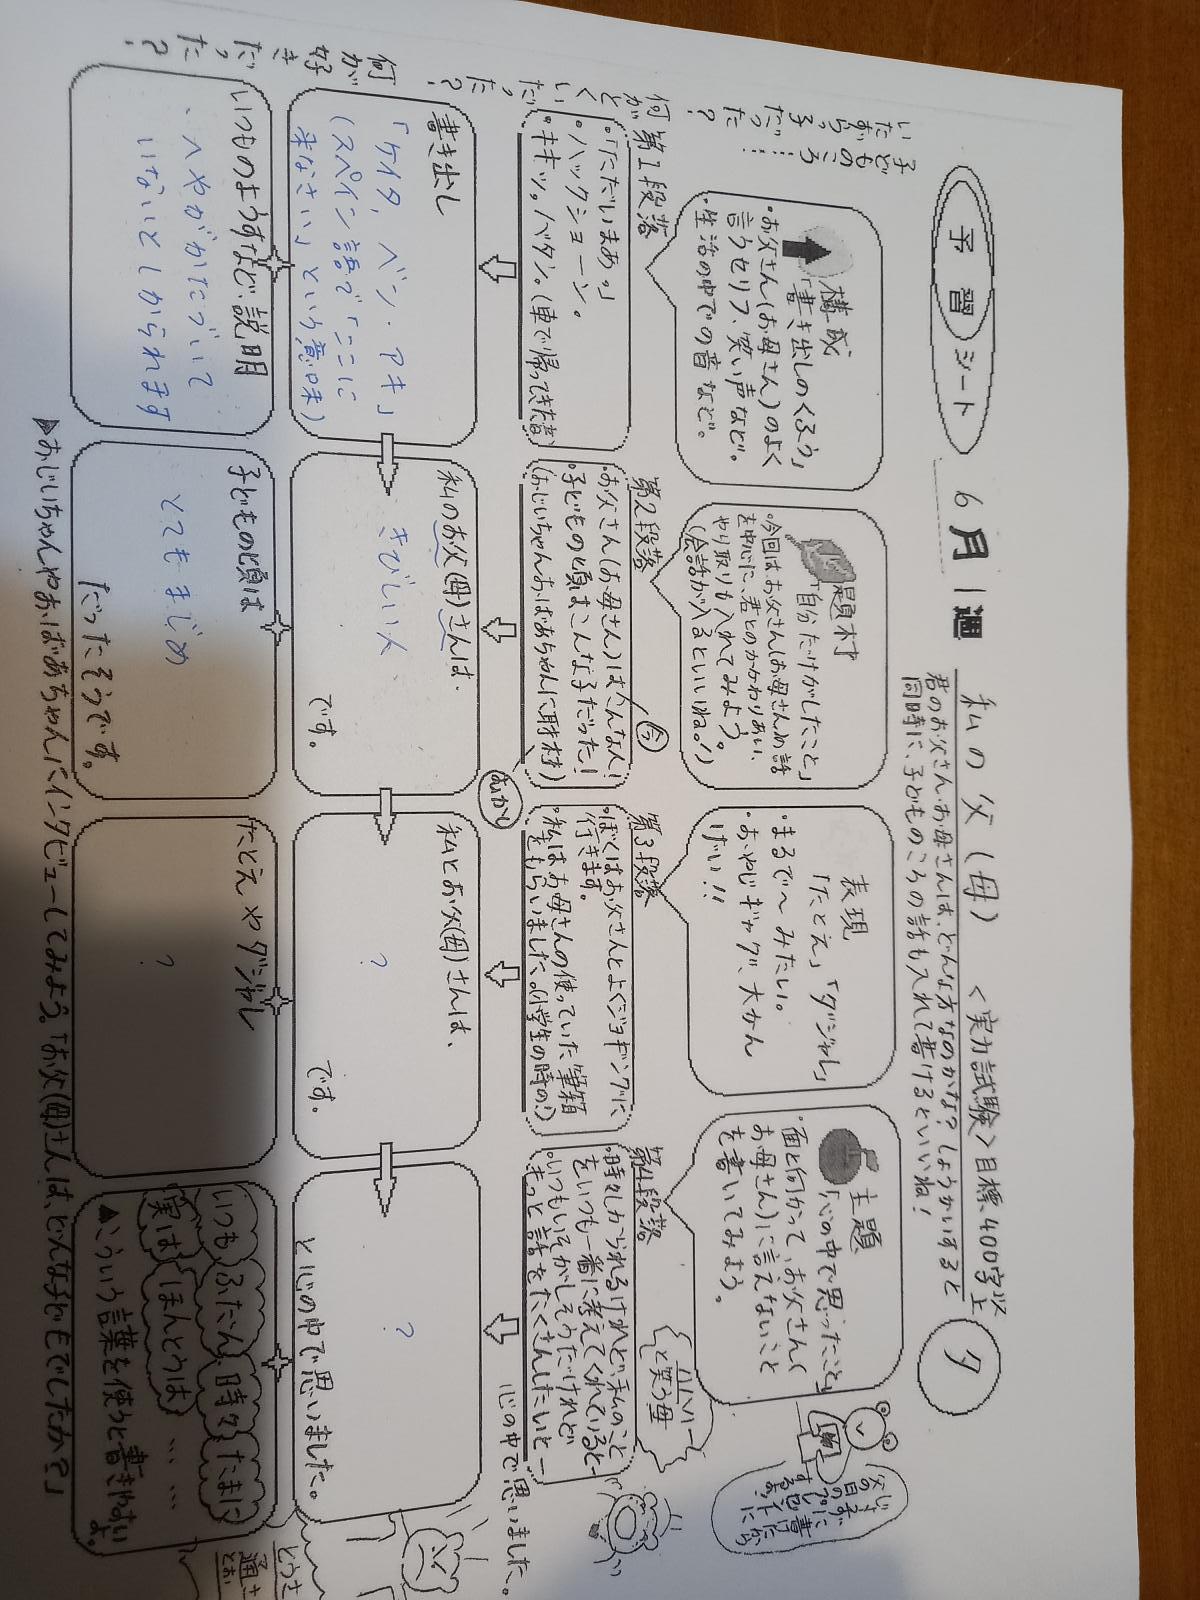 予習シート
6月1週
私の父(母)
<実力試験>目標、400字以上
夕
君のお父さんお母さんは、どんな方なのかな?しょうかいすると
同時に、子どものころの話も入れて書けるといいね!
構成
「書き出しのくふう」
・お父さん(お母さん)のよく
言うセリフ、笑い声など。
・生活の中での音など。
題材
「自分だけがしたこと」
・今回はお父さんお母さんの話
を中心に、君とのかかわりあい、
やり取りも入れてみよう。
(会話が入るといいね!)
表現
「たとえ」「ダジャレ」
・まるで〜みたい。
・おやじギャグ、大かん
げい!!
主題
「心の中で思ったこと」
・面と向かって、お父さん(
お母さん)に言えないこと
を書いてみよう。
子どものころ…
いたずらっ子だった?
何がとくいだった?
何が好きだった?
第1段落
・「ただいまあ。」
・ハックショーン。
・キキッ。バタン。(車で帰ってきた音)
第2段落
・お父さん(お母さん)はこんな人!
・子どもの頃はこんな子だった!
(おじいちゃんおばあちゃんに取材)
今
むかし
第3段落
・ぼくはお父さんとよくジョギングに
行きます。
・私はお母さんの使っていた筆箱
をもらいました。(小学生の時の!)
第4段落
・時々しかられるけれど、私のこと
をいつも一番に考えてくれていると—
・いつもいそがしそうだけれど
もっと話をたくさんしたいと—
心の中で思いました。
ハハハー
と笑う母
書き出し
「ケイタ、ベン・アキ」
(スペイン語で「ここに
来なさい」という意味)
私のお父(母)さんは、
きびしい人
です。
私とお父(母)さんは、
?
です。
?
と心の中で思いました。
いつものようすなど、説明
、へやがかたづいて
いないとしかられます
子どもの頃は
とてもまじめ
だったそうです。
たとえやダジャレ
?
いつも ふだん 時々 たまに
実は ほんとうは ……
▲こういう言葉を使うと書きやすい
よ。
▶おじいちゃんやおばあちゃんにインタビューしてみよう。「お父(母)さんは、どんな子どもでしたか?」